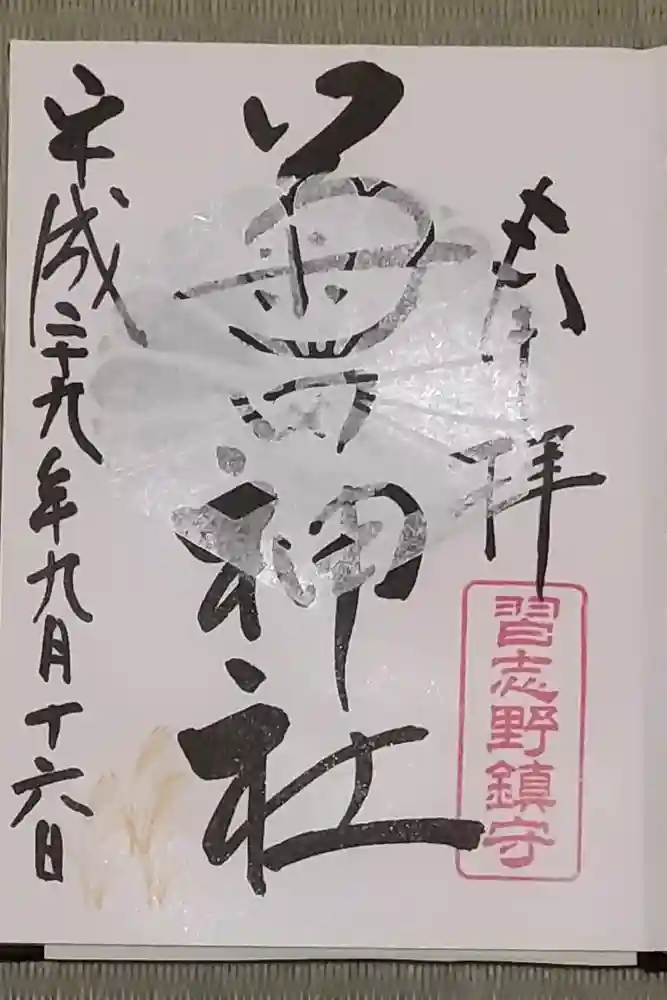 奉拝
習志野鎮守
菊田神社
平成二十九年九月十六日